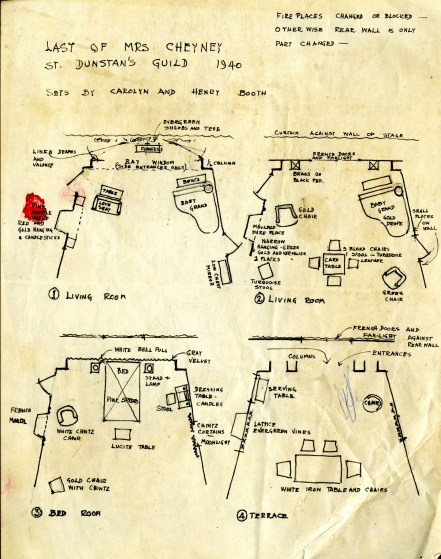 FIRE PLACES CHANGED OR BLOCKED —
OTHER WISE REAR WALL IS ONLY
PART CHANGED —
LAST OF MRS CHEYNEY
ST. DUNSTAN'S GUILD 1940
SETS BY CAROLYN AND HENRY BOOTH
EVERGREEN
SHRUBS AND TREE
LINEN DRAPES
AND VALANCE
BAY WINDOW
(SIDE ENTRANCES ONLY)
COLUMN
TABLE
LOVE SEAT
BENCH
BABY
GRAND
RED AND
GOLD HANGING
& CANDLESTICKS
LOW CHEST
MIRROR
① LIVING ROOM
CURTAIN AGAINST WALL OF STAGE
FRENCH DOORS
AND FANLIGHT
BRASS ON
BLACK PED.
GOLD
CHAIR
BABY
GRAND
GOLD DRAPE
SMALL
PLACES
ON
WALL
MOULDED
FIRE PLACE
NARROW
HANGING - GREEN
GOLD AND VERMILION
2 PLACES
TURQUOISE
STOOL
CARD
TABLE
3 BLOND CHAIRS
1 STOOL - TURQUOISE
LEATHER
GREEN
CHAIR
② LIVING ROOM
WHITE BELL PULL
GRAY
VELVET
BED
STAND &
LAMP
DRESSING
TABLE -
CANDLES
STOOL
FRENCH
MANTEL
WHITE CHINTZ
CHAIR
LUCITE TABLE
CHINTZ
CURTAINS
MOONLIGHT
GOLD CHAIR
WITH CHINTZ
③ BED ROOM
FRENCH DOORS AND
FANLIGHT AGAINST
REAR WALL
COLUMNS
ENTRANCES
SERVING
TABLE
LATTICE
EVERGREEN VINES
WHITE IRON TABLE AND CHAIRS
④ TERRACE